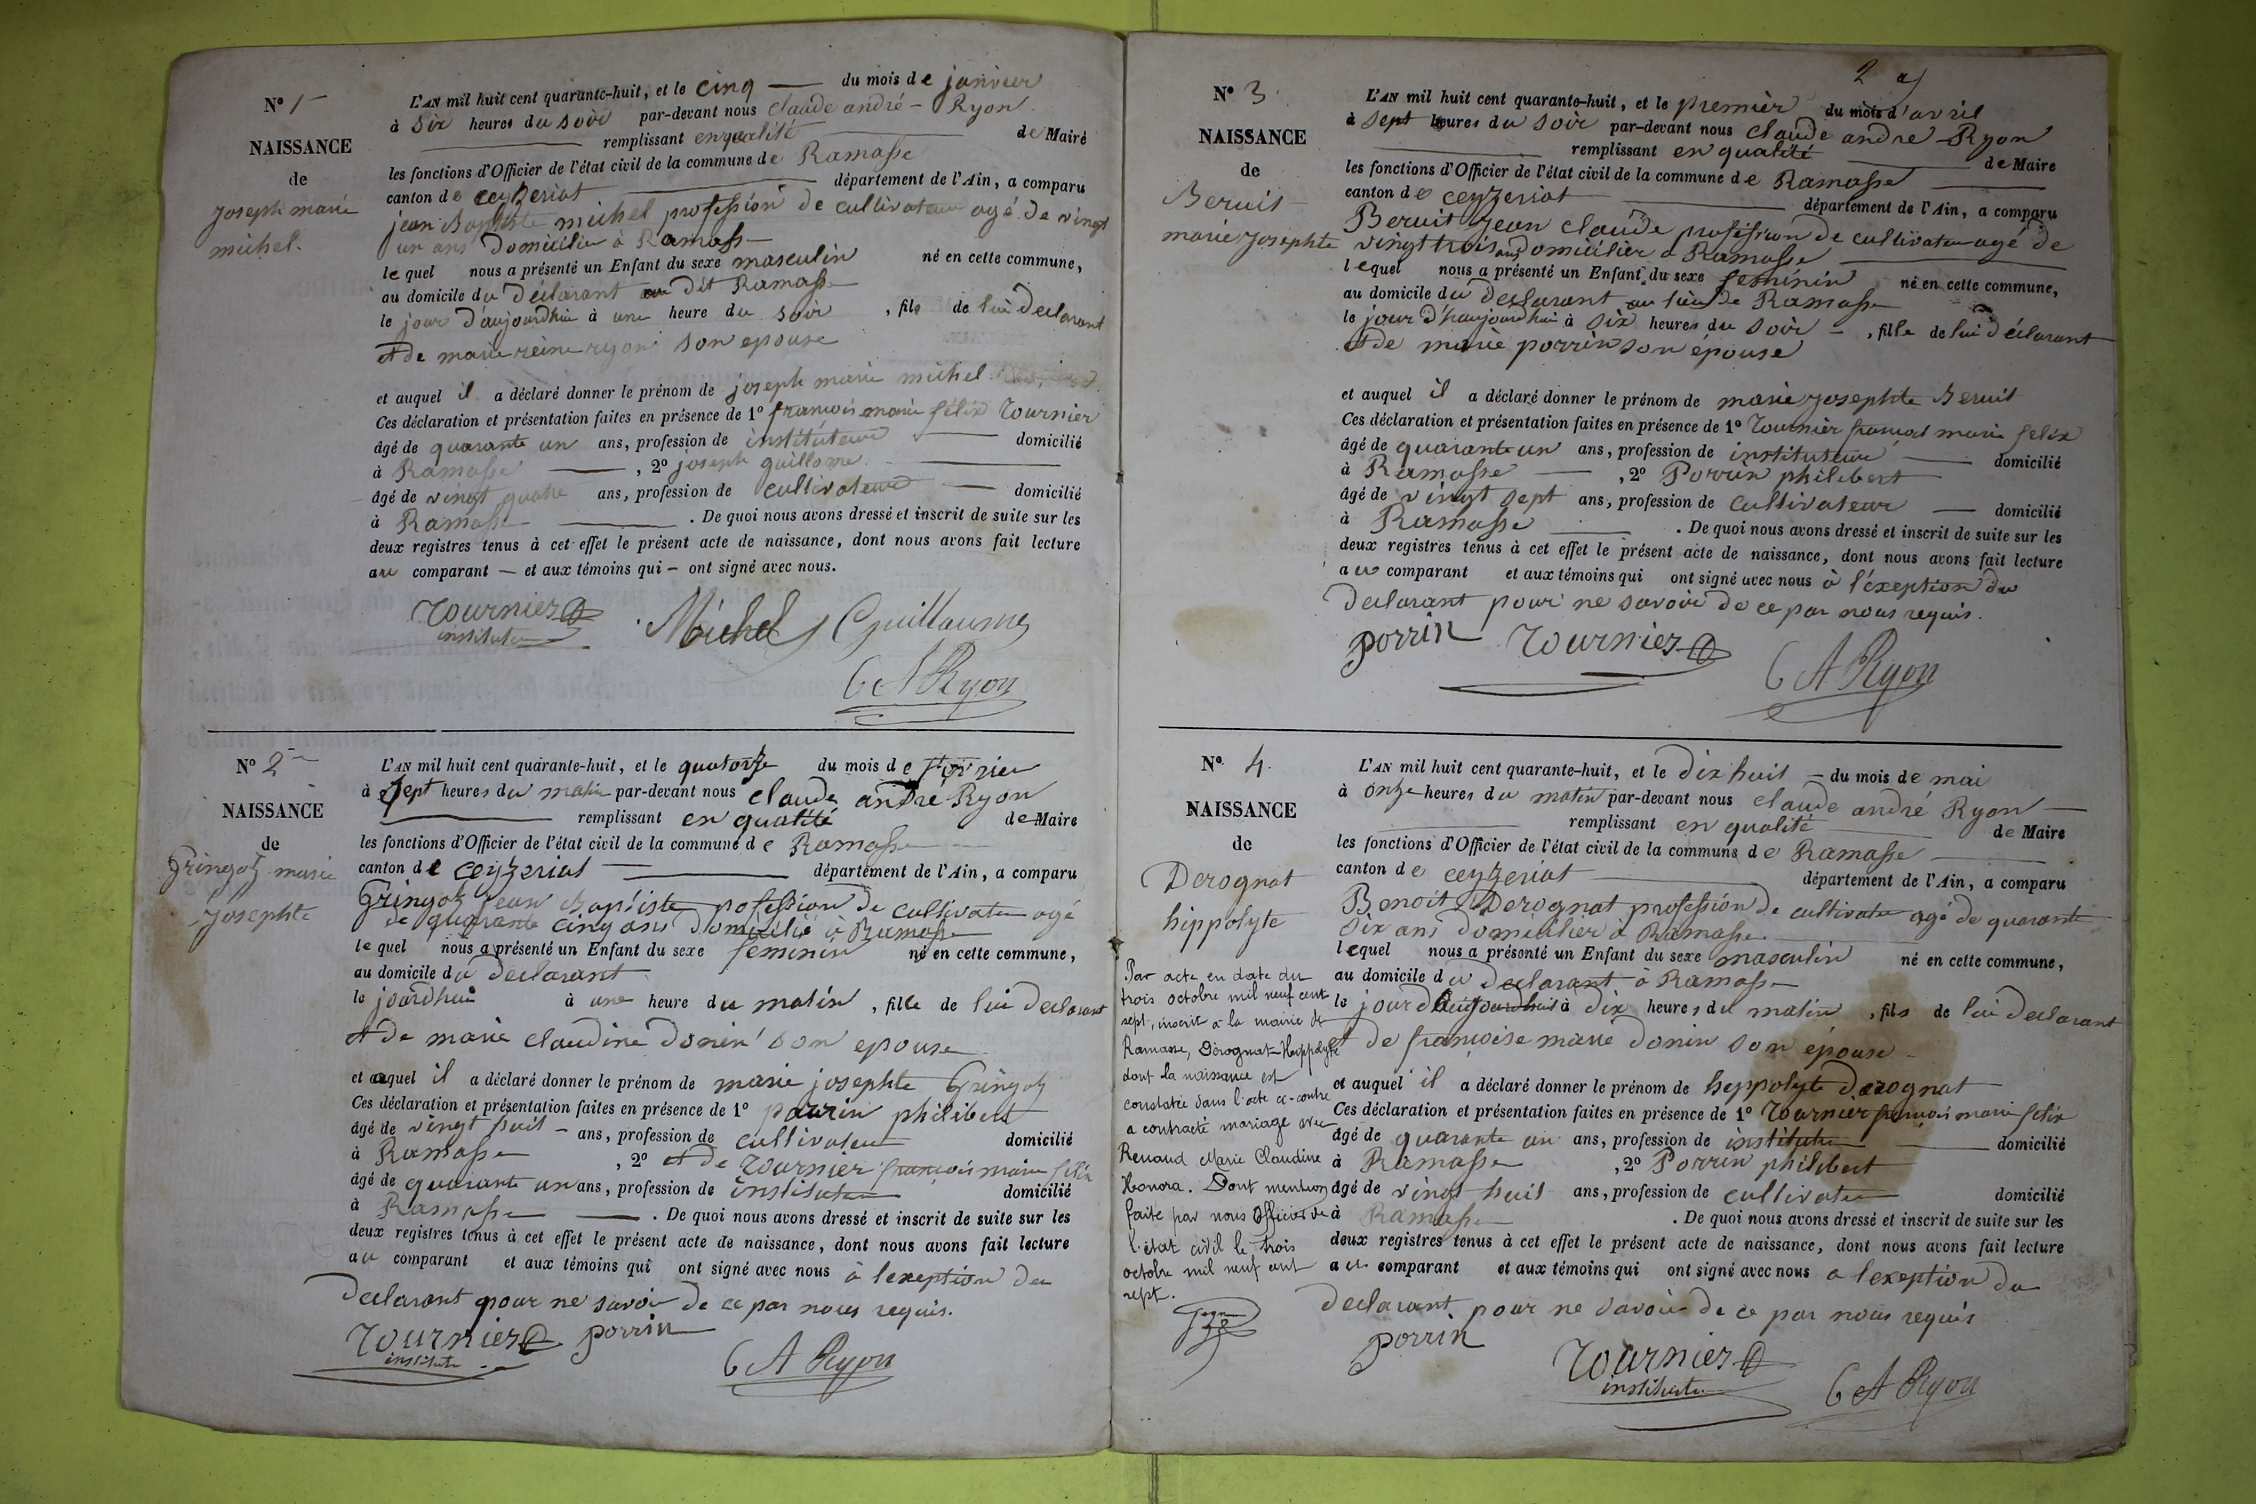 N° 1
NAISSANCE
de
joseph marie
michel.
L'AN mil huit cent quarante-huit, et le cinq — du mois de janvier
à six heures du soir par-devant nous claude andré - Ryon
remplissant en qualité de Maire
les fonctions d'Officier de l'état civil de la commune de Ramasse
canton de ceyzeriat département de l'Ain, a comparu
jean Baptiste michel profession de cultivateur agé de vingt
un ans Domicilier à Ramasse
le quel nous a présenté un Enfant du sexe masculin né en cette commune,
au domicile du Déclarant au Dit Ramasse
le jour d'aujourdhui à une heure du soir , fils de lui Declarant
et de marie reine ryon son epouse
et auquel il a déclaré donner le prénom de joseph marie michel
Ces déclaration et présentation faites en présence de 1° francois marie félix Tournier
âgé de quarante un ans, profession de instituteur domicilié
à Ramasse , 2° joseph guillome
âgé de vingt quatre ans, profession de cultivateur domicilié
à Ramasse . De quoi nous avons dressé et inscrit de suite sur les
deux registres tenus à cet effet le présent acte de naissance, dont nous avons fait lecture
au comparant — et aux témoins qui — ont signé avec nous.
Tournier Michel Guillaume
institute
C A Ryon
N° 2
NAISSANCE
de
Gringoz marie
josephte
L'AN mil huit cent quarante-huit, et le quatorze du mois de février
à sept heures du matin par-devant nous claude andré Ryon
remplissant en qualité de Maire
les fonctions d'Officier de l'état civil de la commune de Ramasse
canton de ceyzeriat département de l'Ain, a comparu
Gringoz jean Baptiste profession de cultivateur agé
de quarante cinq ans Domicilié à Ramasse
le quel nous a présenté un Enfant du sexe feminin né en cette commune,
au domicile du Declarant
le jourdhui à une heure du matin , fille de lui Declarant
et De marie claudine Donin son epouse
et auquel il a déclaré donner le prénom de marie josephte Gringoz
Ces déclaration et présentation faites en présence de 1° porrin philibert
âgé de vingt huit - ans, profession de cultivateur domicilié
à Ramasse , 2° et de Tournier françois marie félix
âgé de quarante un ans, profession de instituteur domicilié
à Ramasse . De quoi nous avons dressé et inscrit de suite sur les
deux registres tenus à cet effet le présent acte de naissance, dont nous avons fait lecture
au comparant et aux témoins qui ont signé avec nous à lexeption du
Declarant pour ne savoir de ce par nous requis.
Tournier porrin
institute
C A Ryon
2
N° 3
NAISSANCE
de
Beruit
marie josephte
L'AN mil huit cent quarante-huit, et le premier du mois d'avril
à sept heures du soir par-devant nous claude andre Ryon
remplissant en qualité de Maire
les fonctions d'Officier de l'état civil de la commune de Ramasse
canton de ceyzeriat département de l'Ain, a comparu
Beruit jean claude profession de cultivateur agé de
vingt trois ans domicilier a Ramasse
lequel nous a présenté un Enfant du sexe feminin né en cette commune,
au domicile du Declarant au lieu de Ramasse
le jour d'haujourdhui à six heures du soir - , fille de lui Déclarant
et de marie porrin son épouse
et auquel il a déclaré donner le prénom de marie josephte Beruit
Ces déclaration et présentation faites en présence de 1° Tournier francois marie felix
âgé de quarante un ans, profession de instituteur domicilié
à Ramasse , 2° Porrin philibert
âgé de vingt sept ans, profession de cultivateur domicilié
à Ramasse . De quoi nous avons dressé et inscrit de suite sur les
deux registres tenus à cet effet le présent acte de naissance, dont nous avons fait lecture
au comparant et aux témoins qui ont signé avec nous à l'éxeption du
Declarant pour ne savoir de ce par nous requis.
porrin Tournier
C A Ryon
N° 4
NAISSANCE
de
Derognat
hippolyte
Par acte en date du
trois octobre mil neuf cent
sept, inscrit à la mairie de
Ramasse, Dérognat Hippolyte
dont la naissance est
constatée dans l'acte ci-contre
a contracté mariage avec
Renaud Marie Claudine
Honora. Dont mention
faite par nous Officier de
l'état civil le trois
octobre mil neuf cent
sept.
L'AN mil huit cent quarante-huit, et le Dix huit - du mois de mai
à onze heures du matin par-devant nous claude andré Ryon
remplissant en qualité de Maire
les fonctions d'Officier de l'état civil de la commune de Ramasse
canton de ceyzeriat département de l'Ain, a comparu
Benoit Derognat profession de cultivateur agé de quarante
six ans Domicilier à Ramasse
lequel nous a présenté un Enfant du sexe masculin né en cette commune,
au domicile du Declarant à Ramasse
le jour à dix heures du matin , fils de lui Declarant
et de françoise marie Donin son épouse
et auquel il a déclaré donner le prénom de heppolyte Derognat
Ces déclaration et présentation faites en présence de 1° Tournier francois marie felix
âgé de quarante un ans, profession de institute domicilié
à Ramasse , 2° Porrin philibert
âgé de vingt huit ans, profession de cultivateur domicilié
à Ramasse . De quoi nous avons dressé et inscrit de suite sur les
deux registres tenus à cet effet le présent acte de naissance, dont nous avons fait lecture
au comparant et aux témoins qui ont signé avec nous a lexeption du
Declarant pour ne savoir de ce par nous requis
porrin Tournier
institute
C A Ryon